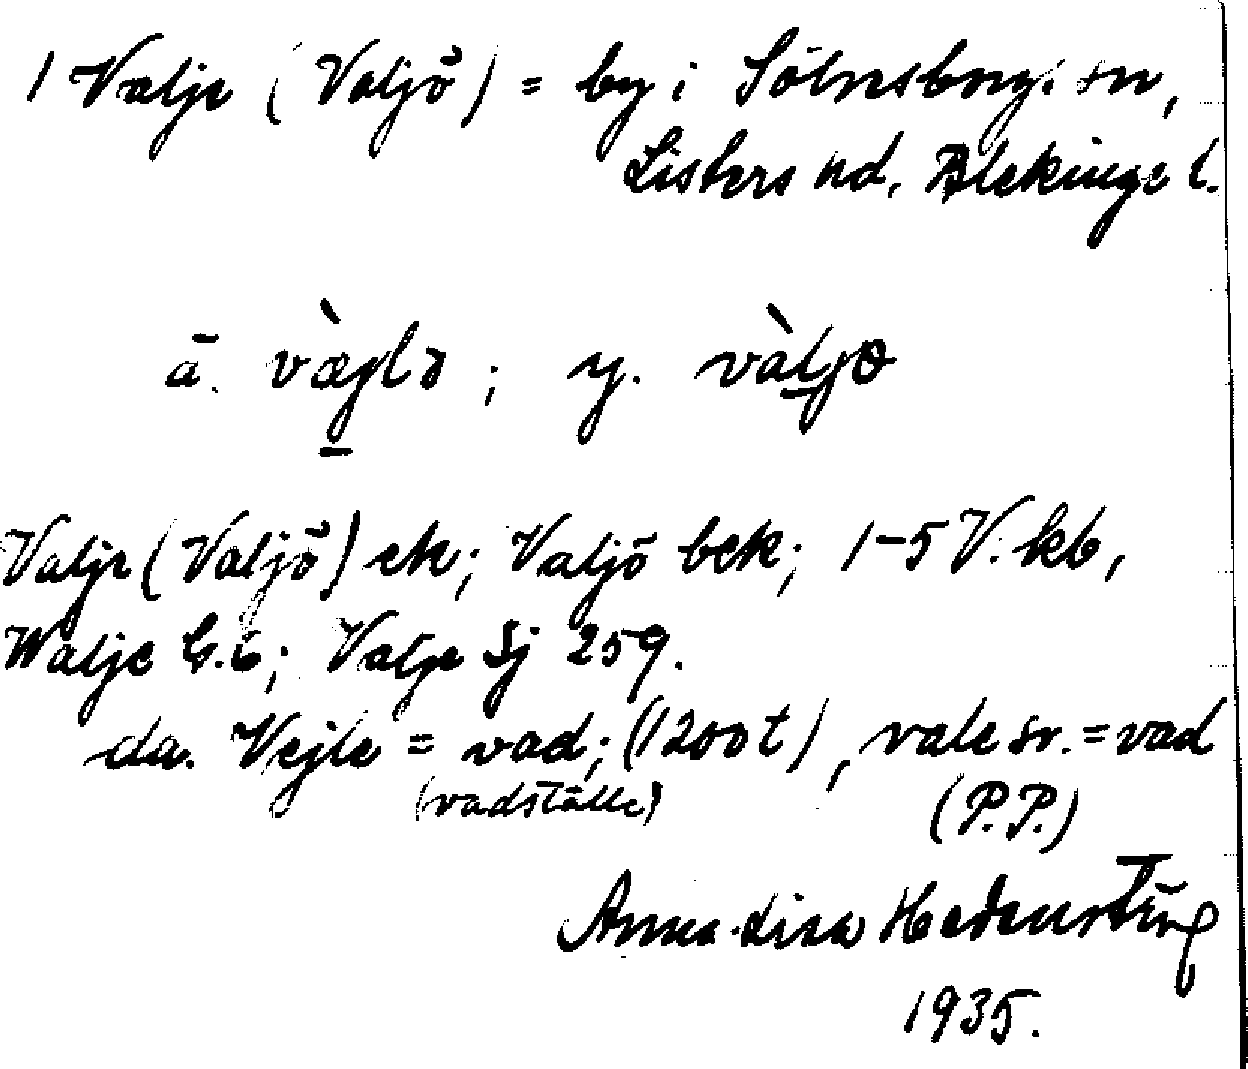 1 Valje (Valjö) = by i Sölvesborgs sn,
Listers hd, Blekinge l.
ä. væglə ; y. vàljə
Valje (Valjö) ek; Valjö bek; 1-5 V. kb,
Walje G.b; Valje Sj 259.
da. Vejle = vad; (1200 t), vale sv. = vad
(vadställe) (P.P.)
Anna-Lisa Hedenstierna
1935.